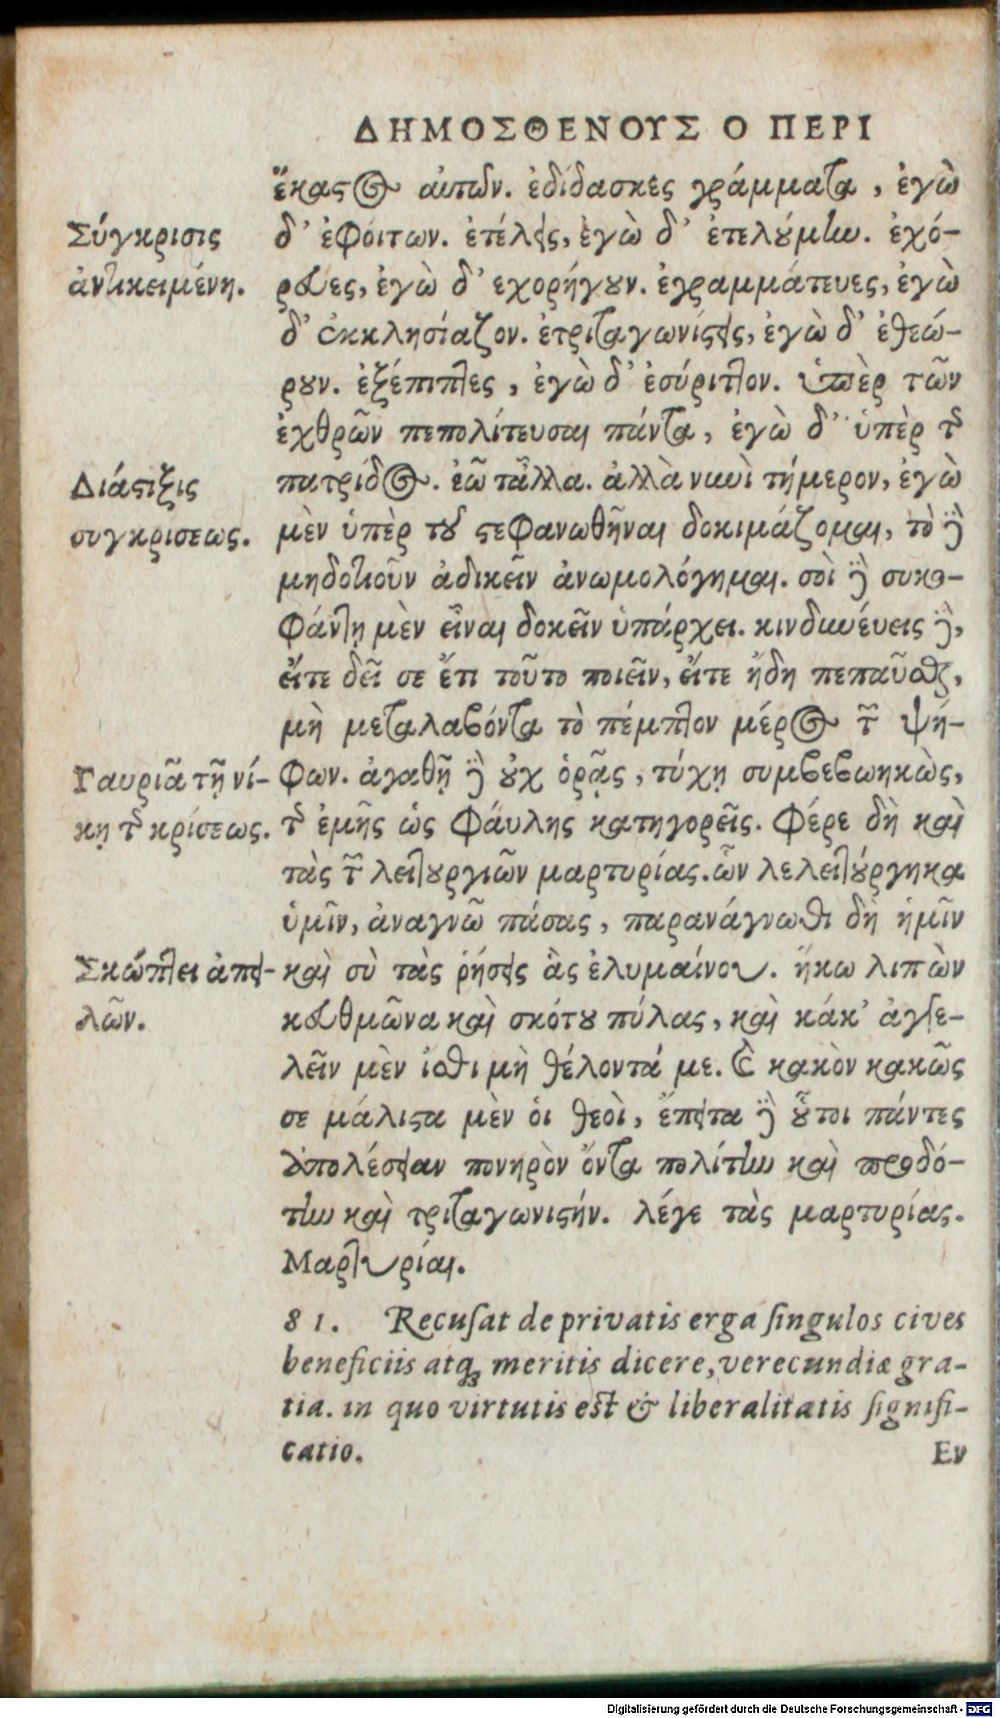 ΔΗΜΟΣΘΕΝΟΥΣ Ο ΠΕΡΙ
ἕκαστος αὐτῶν. ἐδίδασκες γράμματα, ἐγὼ
Σύγκρισις
δ' ἐφοίτων. ἐτέλεις, ἐγὼ δ' ἐτελούμην. ἐχό-
ἀντικειμένη.
ρευες, ἐγὼ δ' ἐχορήγουν. ἐγραμμάτευες, ἐγὼ
δ' ἐκκλησίαζον. ἐτριταγωνίστεις, ἐγὼ δ' ἐθεώ-
ρουν. ἐξέπιπτες, ἐγὼ δ' ἐσύριττον. ὑπὲρ τῶν
ἐχθρῶν πεπολίτευσαι πάντα, ἐγὼ δ' ὑπὲρ τῆς
Διάστιξις
πατρίδος. ἐῶ τἆλλα. ἀλλὰ νυνὶ τήμερον, ἐγὼ
συγκρισεως.
μὲν ὑπὲρ τοῦ στεφανωθῆναι δοκιμάζομαι, τὸ δὲ
μηδοτιοῦν ἀδικεῖν ἀνωμολόγημαι. σοὶ δὲ συκο-
φάντῃ μὲν εἶναι δοκεῖν ὑπάρχει. κινδυνεύεις δὲ,
εἴτε δεῖ σε ἔτι τοῦτο ποιεῖν, εἴτε ἤδη πεπαῦσθαι,
μὴ μεταλαβόντα τὸ πέμπτον μέρος τῶν ψή-
Γαυριᾶ τῇ νί-
φων. ἀγαθῇ δὲ οὐχ ὁρᾷς, τύχῃ συμβεβωηκὼς,
κῃ τῆς κρίσεως.
τῆς ἐμῆς ὡς φαύλης κατηγορεῖς. Φέρε δὴ καὶ
τὰς τῶν λειτουργιῶν μαρτυρίας. ὧν λελειτούργηκα
ὑμῖν, ἀναγνῶ πάσας, παρανάγνωθι δὴ ἡμῖν
Σκώπτει ἀπει-
καὶ σὺ τὰς ῥήσεις ἃς ἐλυμαίνου. ἥκω λιπὼν
λῶν.
κευθμῶνα καὶ σκότου πύλας, καὶ κάκ' ἀγγε-
λεῖν μὲν ἴσθι μὴ θέλοντά με. καὶ κακὸν κακῶς
σε μάλιστα μὲν οἱ θεοὶ, ἔπειτα δὲ οὗτοι πάντες
ἀπολέσειαν πονηρὸν ὄντα πολίτην καὶ προδό-
την καὶ τριταγωνιστήν. λέγε τὰς μαρτυρίας.
Μαρτυρίαι.
81. Recusat de privatis erga singulos cives
beneficiis atq; meritis dicere, verecundiæ gra-
tia. in quo virtutis est & liberalitatis signifi-
catio.
Εν
Digitalisierung gefördert durch die Deutsche Forschungsgemeinschaft - DFG